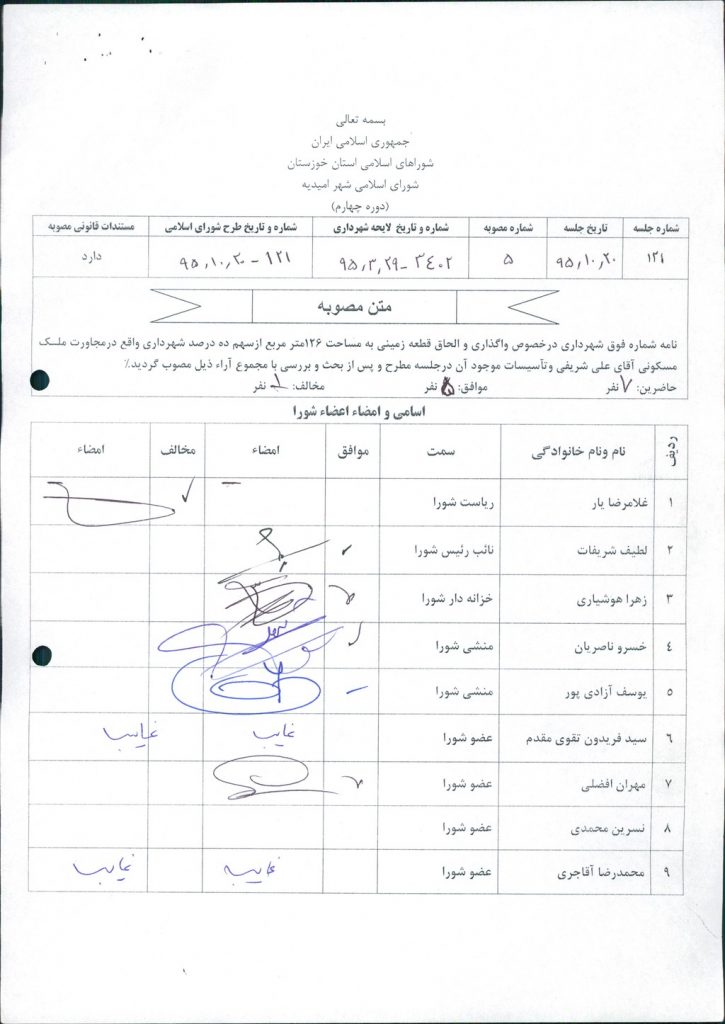 بسمه تعالی
جمهوری اسلامی ایران
شوراهای اسلامی استان خوزستان
شورای اسلامی شهر امیدیه
(دوره چهارم)
شماره جلسه تاریخ جلسه شماره مصوبه شماره و تاریخ لایحه شهرداری شماره و تاریخ طرح شورای اسلامی مستندات قانونی مصوبه
۱۲۱ ۹۵٫۱۰٫۲۰ ۵ ۳۴۰۲ - ۹۵٫۳٫۲۹ ۱۲۱ - ۹۵٫۱۰٫۲۰ دارد
متن مصوبه
نامه شماره فوق شهرداری درخصوص واگذاری و الحاق قطعه زمینی به مساحت ۱۲۶متر مربع ازسهم ده درصد شهرداری واقع درمجاورت ملک
مسکونی آقای علی شریفی وتأسیسات موجود آن درجلسه مطرح و پس از بحث و بررسی با مجموع آراء ذیل مصوب گردید٪
حاضرین: ۷ نفر موافق: ۵ نفر مخالف: ۱ نفر
اسامی و امضاء اعضاء شورا
ردیف نام ونام خانوادگی سمت موافق امضاء مخالف امضاء
۱ غلامرضا یار ریاست شورا
۲ لطیف شریفات نائب رئیس شورا
۳ زهرا هوشیاری خزانه دار شورا
٤ خسرو ناصریان منشی شورا
۵ یوسف آزادی پور منشی شورا
٦ سید فریدون تقوی مقدم عضو شورا غایب غایب
۷ مهران افضلی عضو شورا
۸ نسرین محمدی عضو شورا
۹ محمدرضا آقاجری عضو شورا غایب غایب